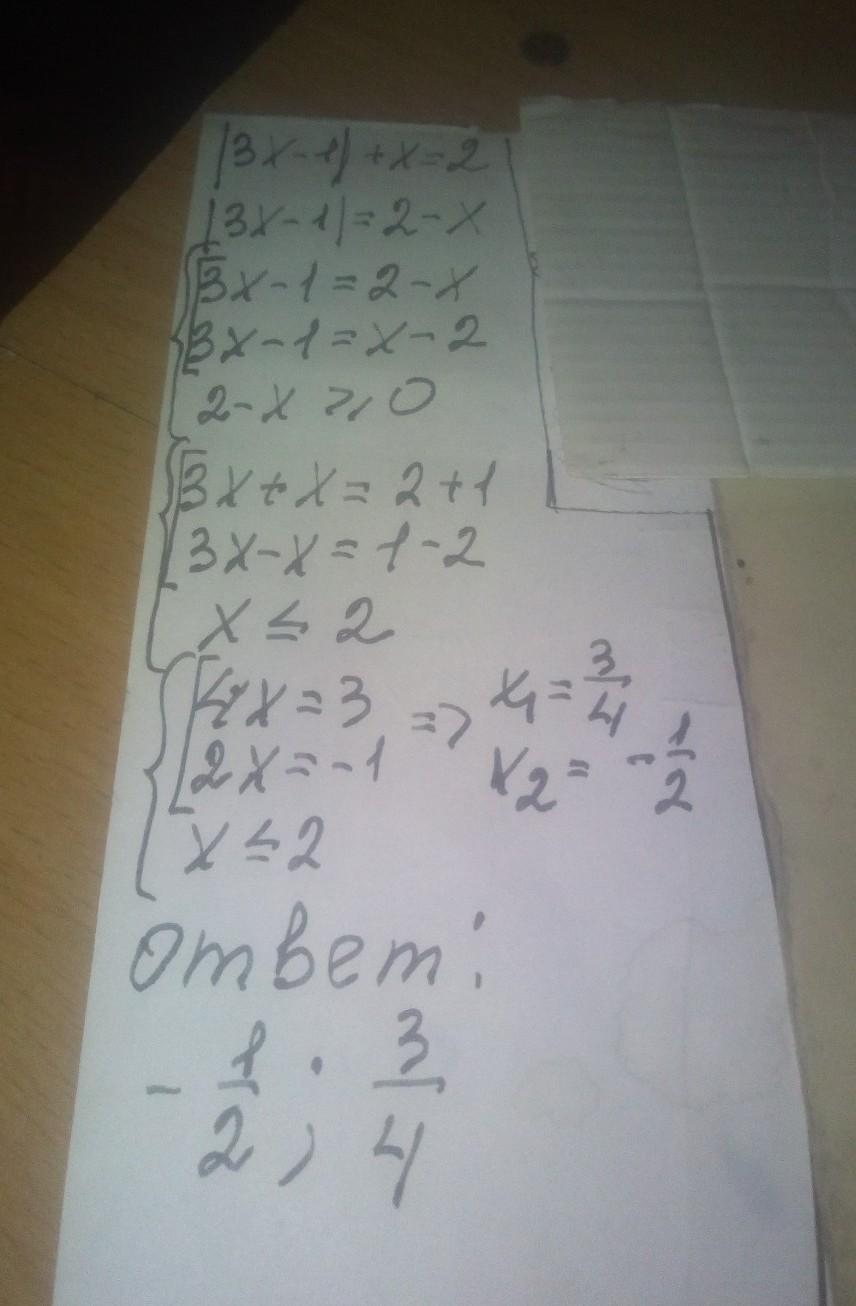 |3x-1|+x=2
|3x-1|=2-x
3x-1=2-x
3x-1=x-2
2-x ⩾ 0
3x+x=2+1
3x-x=1-2
x ≤ 2
4x=3
2x=-1
x≤2
=> x₁=3/4
x₂= -1/2
ответ:
-1/2; 3/4